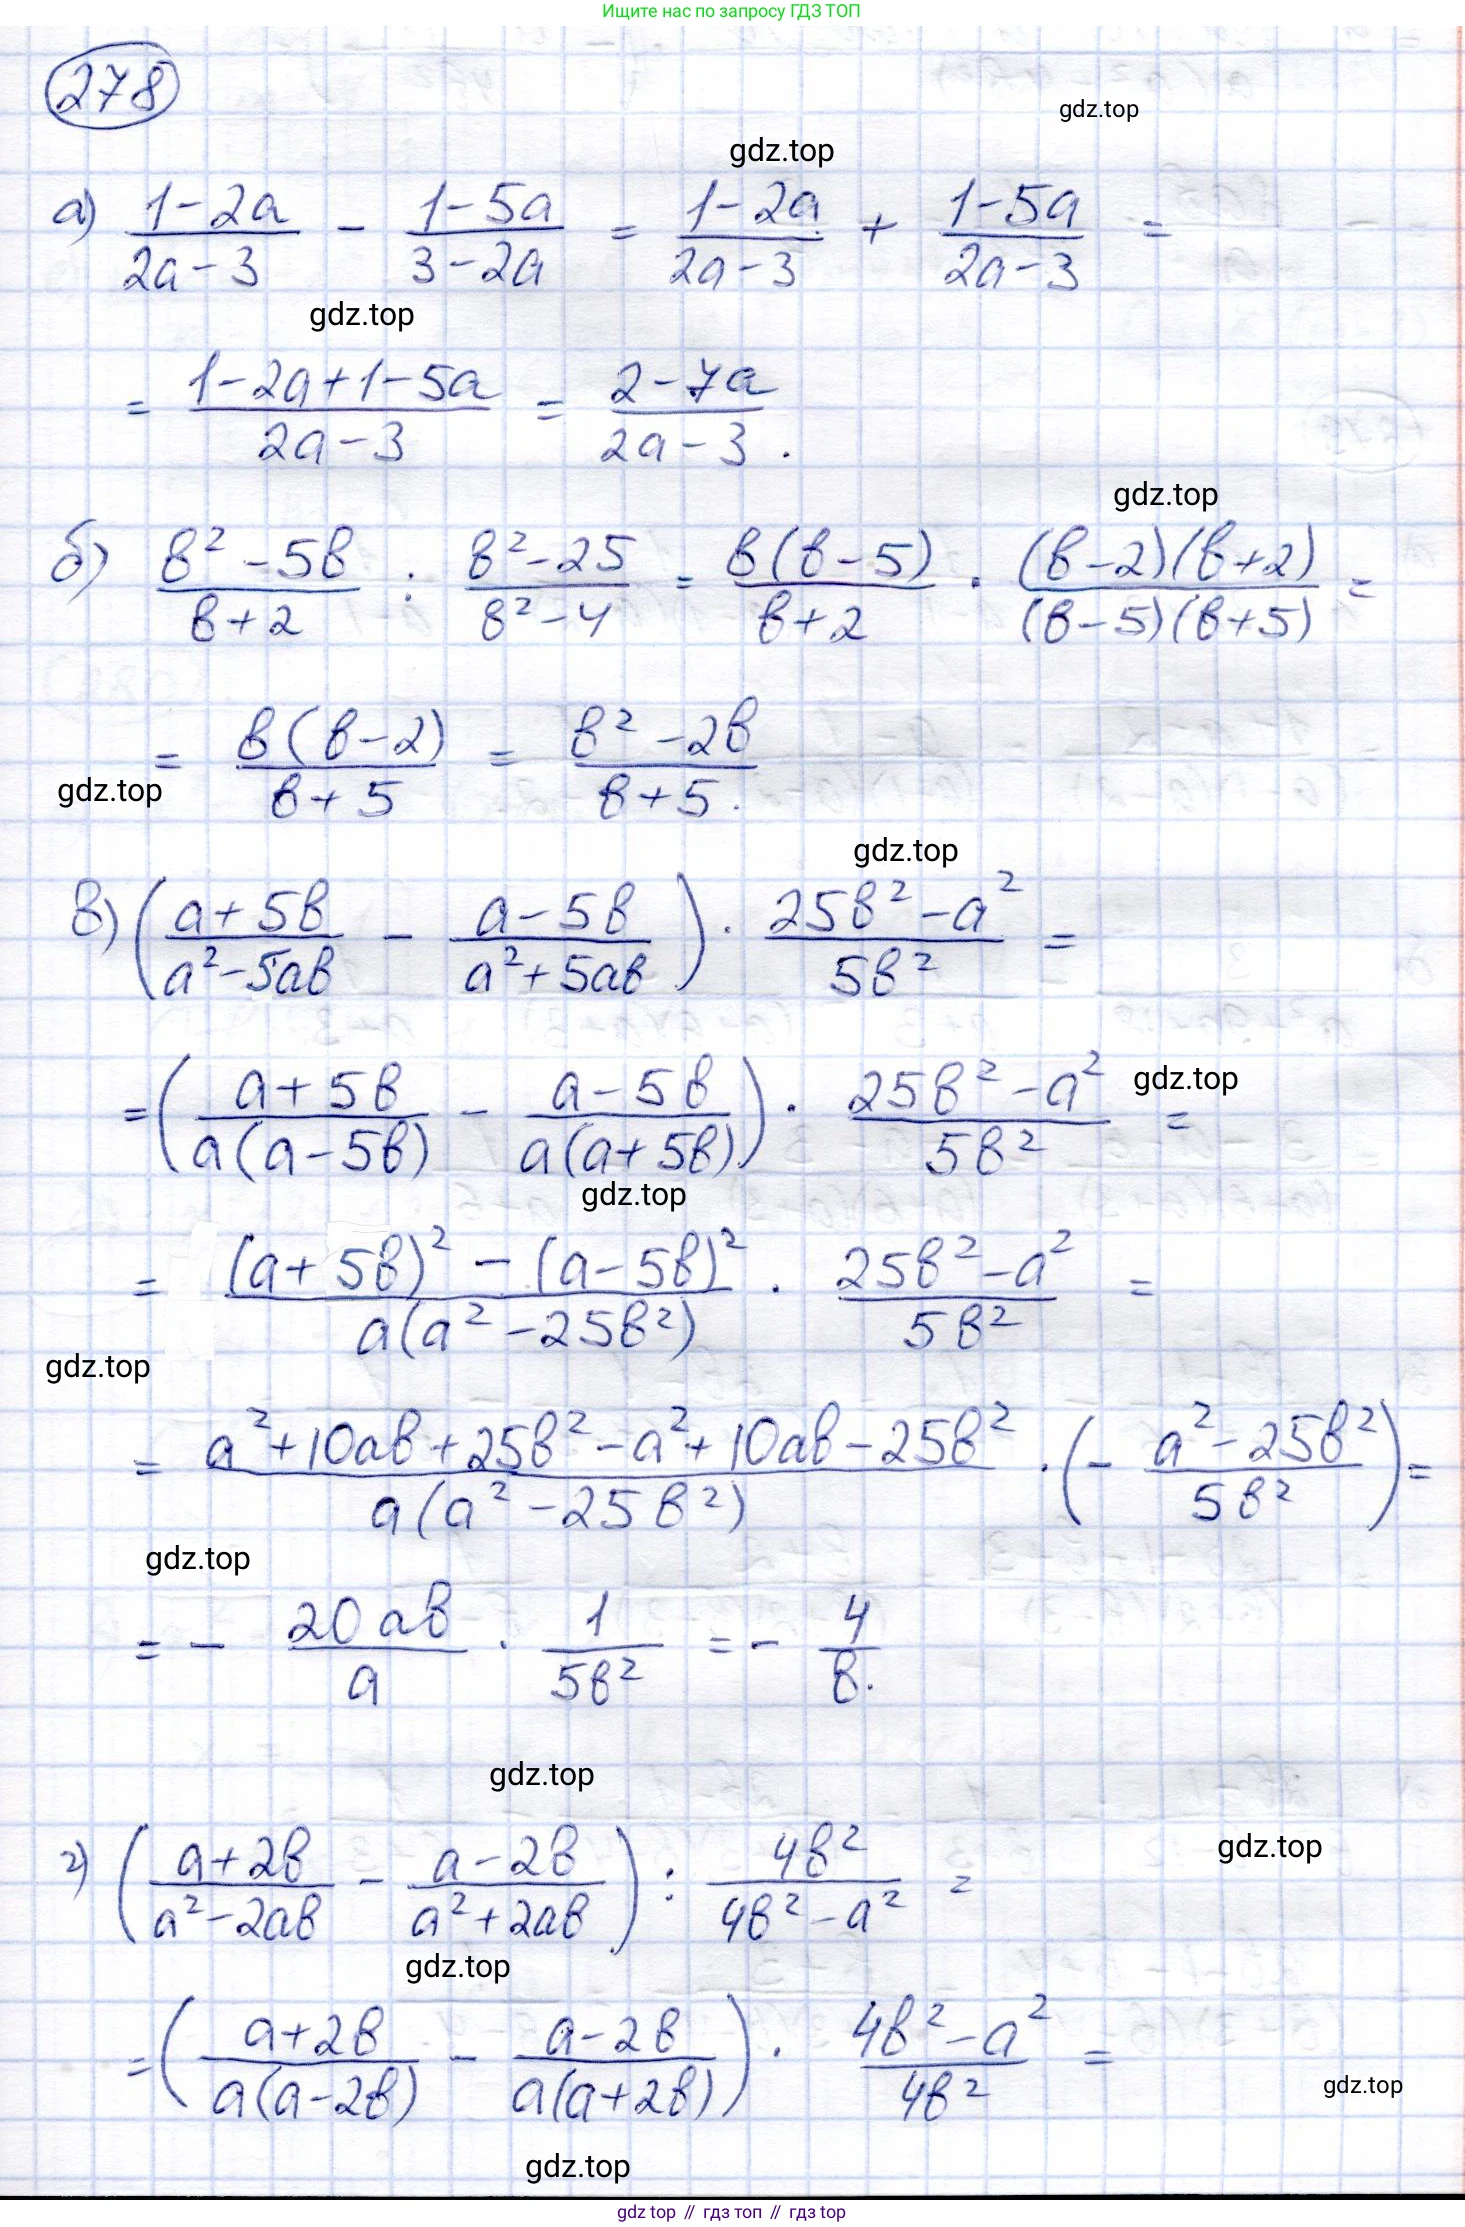 Ищите нас по запросу ГДЗ ТОП
278
gdz.top
gdz.top
а) (1-2a)/(2a-3) - (1-5a)/(3-2a) = (1-2a)/(2a-3) + (1-5a)/(2a-3) =
gdz.top
= (1-2a+1-5a)/(2a-3) = (2-7a)/(2a-3).
gdz.top
б) (b²-5b)/(b+2) : (b²-25)/(b²-4) = b(b-5)/(b+2) · (b-2)(b+2)/((b-5)(b+5)) =
= b(b-2)/(b+5) = (b²-2b)/(b+5).
gdz.top
gdz.top
в) ((a+5b)/(a²-5ab) - (a-5b)/(a²+5ab)) · (25b²-a²)/(5b²) =
= ((a+5b)/(a(a-5b)) - (a-5b)/(a(a+5b))) · (25b²-a²)/(5b²) =
gdz.top
gdz.top
= ((a+5b)² - (a-5b)²)/(a(a²-25b²)) · (25b²-a²)/(5b²) =
gdz.top
= (a²+10ab+25b²-a²+10ab-25b²)/(a(a²-25b²)) · (- (a²-25b²)/(5b²)) =
gdz.top
= - (20ab)/a · 1/(5b²) = - 4/b.
gdz.top
г) ((a+2b)/(a²-2ab) - (a-2b)/(a²+2ab)) : (4b²)/(4b²-a²) =
gdz.top
gdz.top
= ((a+2b)/(a(a-2b)) - (a-2b)/(a(a+2b))) · (4b²-a²)/(4b²) =
gdz.top
gdz.top
gdz top // гдз топ // гдз top